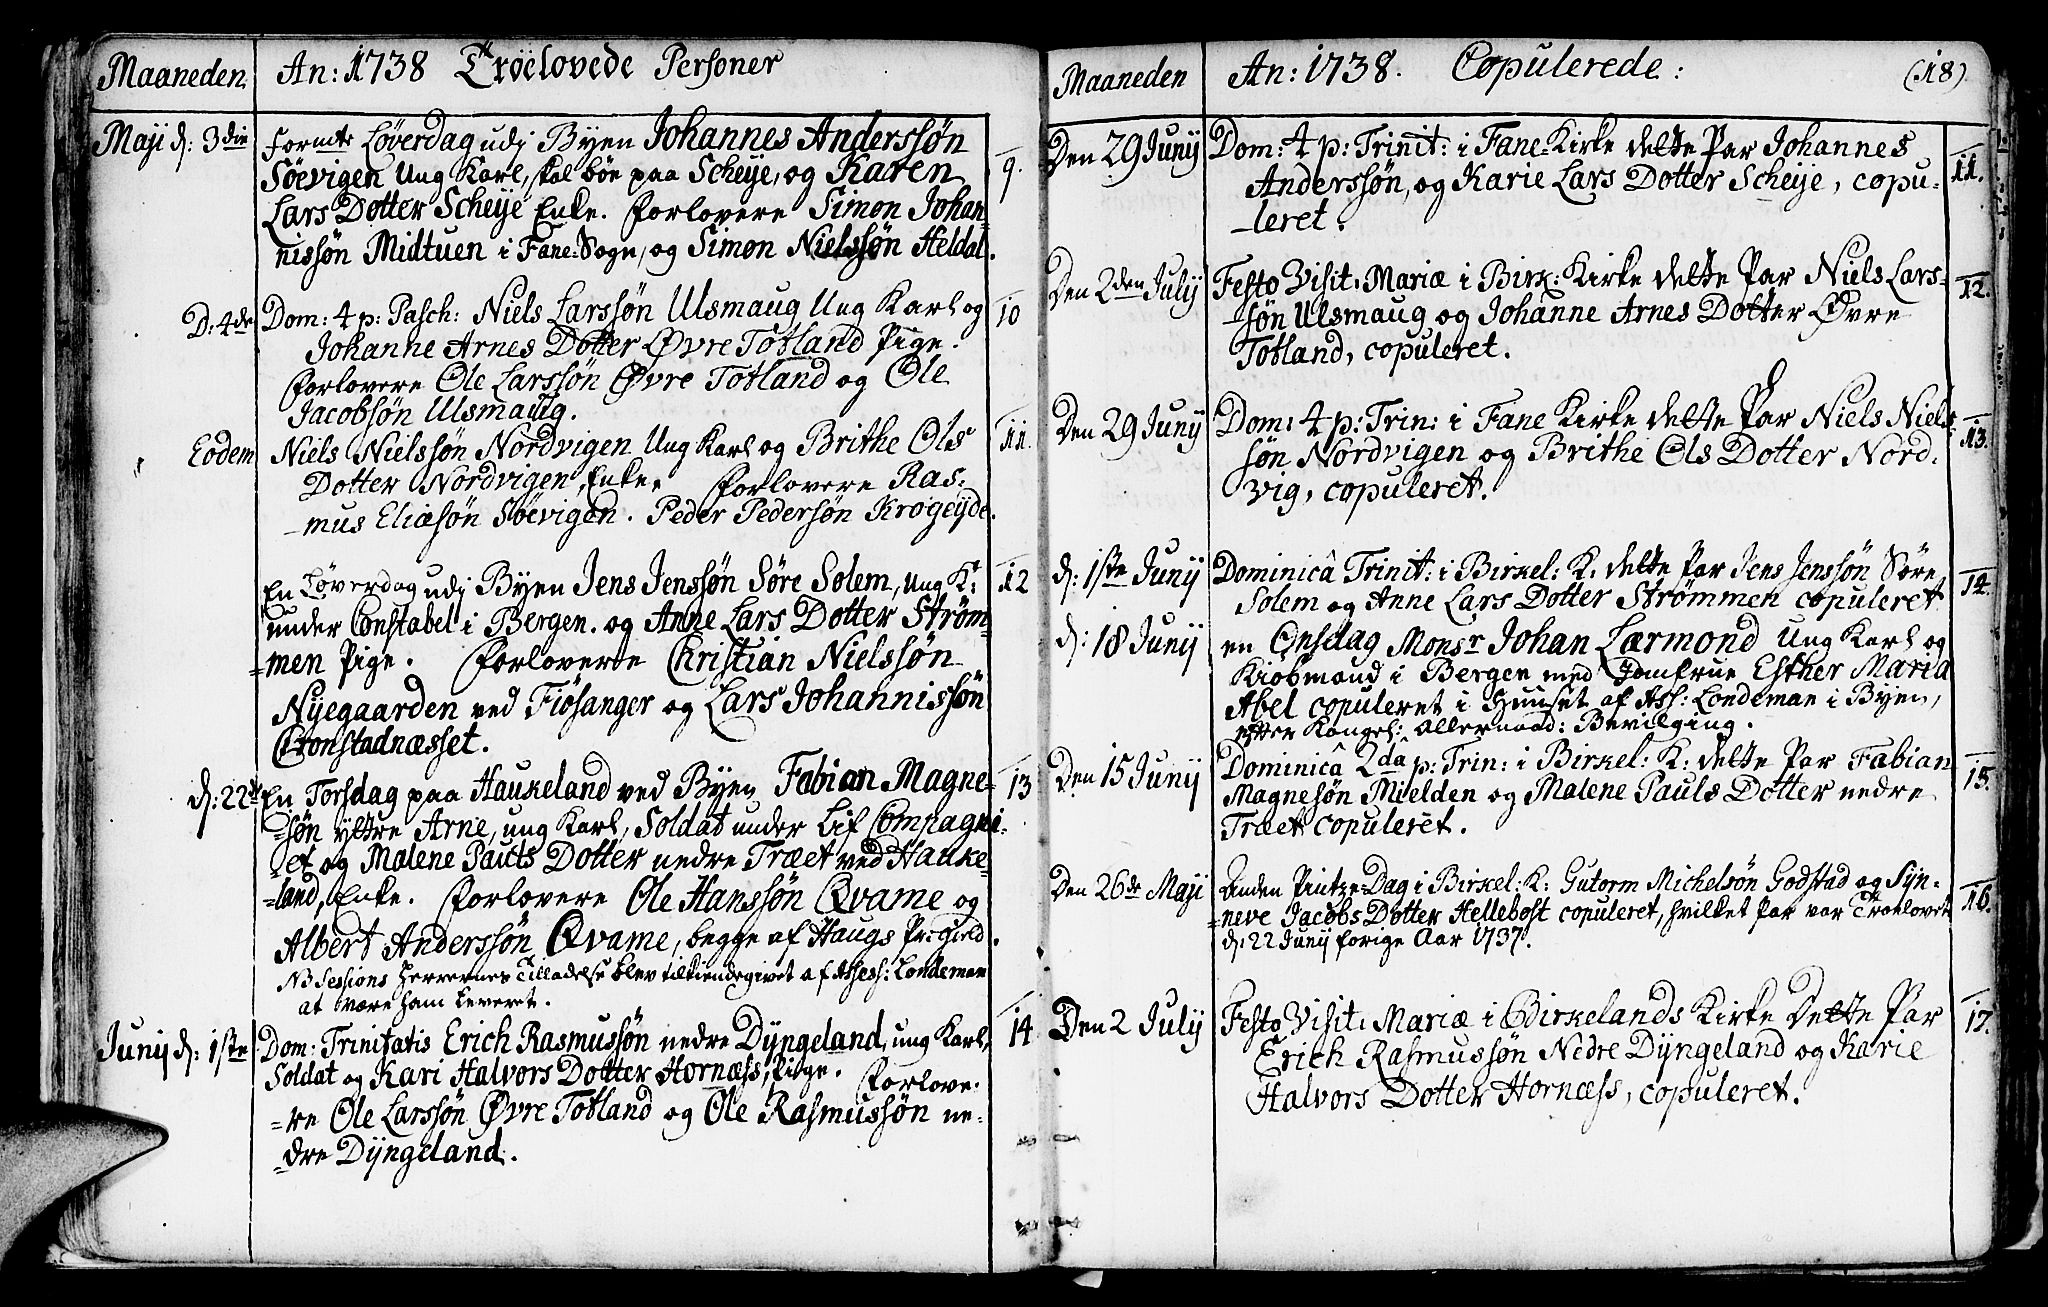 Maaneden An: 1738 Troelovede Personer
Maji d: 3die Formte Løverdag udj Byen Johannes Anderssøn
Söevigen Ung Karl, skal böe paa Scheije, og Karen 9.
Lars Dotter Scheije Enke. Forlovere Simon Johan-
nissøn Midtuen i Fane-Sogn, og Simon Nielssøn Heldal.
D: 4de Dom: 4 p: Pasch: Niels Larssøn Ulsmaug Ung Karl og 10
Johanne Arnes Dotter Øvre Totland Pige.
Forlovere Ole Larssøn Øvre Totland og Ole
Jacobsøn Ulsmaug.
Eodem Niels Nielssøn Nordvigen Ung Karl og Brithe Ols 11.
Dotter Nordvigen, Enke. Forlovere Ras-
-mus Eliæsøn Söevigen. Peder Pedersøn Krogeijde.
En Løverdag udj Byen Jens Jenssøn Söre Solem, Ung K: 12
under Constabel i Bergen. og Anne Lars Dotter Ström-
=men Pige. Forlovere Christian Nielssøn
Nyegaarden ved Fiösanger og Lars Johannissøn
Cronstadnæsset.
d: 22de En Torsdag paa Haukeland ved Byen Fabian Magne- 13
=søn yttre Arne, ung Karl, Soldat under Lif Compagni-
-et og Malene Pauls Dotter nedre Træet ved Hauke-
=land, Enke. Forlovere Ole Hanssøn Qvame og
Albert Anderssøn Qvame, begge af Haugs Præ: Gield.
NB Sessions Herrernes Tilladelse blev tilkiendegivet af Assess: Londeman
at være ham leveret.
Junij d: 1ste Dom: Trinitatis Erich Rasmussøn nedre Dijngeland, ung Karl, 14
Soldat og Kari Halvors Dotter Hornæss, Pige. Forlove-
-re Ole Larssøn Øvre Totland og Ole Rasmussøn ne-
=dre Dijngeland.
Maaneden An: 1738. Copulerede: (18)
Den 29 Junij Dom: 4 p: Trinit: i Fane-Kirke dette Par Johannes 11.
Anderssøn, og Karie Lars Dotter Scheije, copu-
-leret.
Den 2den Julij Festo Visit: Mariæ i Birk: Kirke dette Par Niels Lars- 12.
-søn Ulsmaug og Johanne Arnes Dotter Øvre
Totland, copuleret.
Den 29 Junij Dom: 4 p: Trin: i Fane Kirke dette Par Niels Niels- 13.
søn Nordvigen og Brithe Ols Dotter Nord-
vig, copuleret.
d: 1ste Junij Dominicâ Trinit: i Birkel: K: dette Par Jens Jenssøn Söre 14.
Solem og Anne Lars Dotter Strömmen copuleret
d: 18 Junij en Onsdag Monsr Johan Lærmond Ung Karl og
Kiöbmand i Bergen med Jomfrue Esther Maria
Abel copuleret i Huuset af Ass: Londeman i Byen,
efter Kongel: allernaad: Bevilging.
Den 15 Junij Dominicâ 2da p: Trin: i Birkel: K: dette Par Fabian 15.
Magnesøn Mielden og Malene Pauls Dotter nedre
Træet copuleret.
Den 26de Maji Anden Pintze-Dag i Birkel: K: Gutorm Michelsøn Godstad og Syn- 16.
=neve Jacobs Dotter Hellebost copuleret, hvilket Par var Troelovet
d: 22 Junij forige Aar 1737.
Den 2 Julij Festo Visit: Mariæ i Birkelands Kirke Dette Par 17.
Erich Rasmussøn Nedre Dijngeland og Karie
Halvors Dotter Hornæss, copuleret.